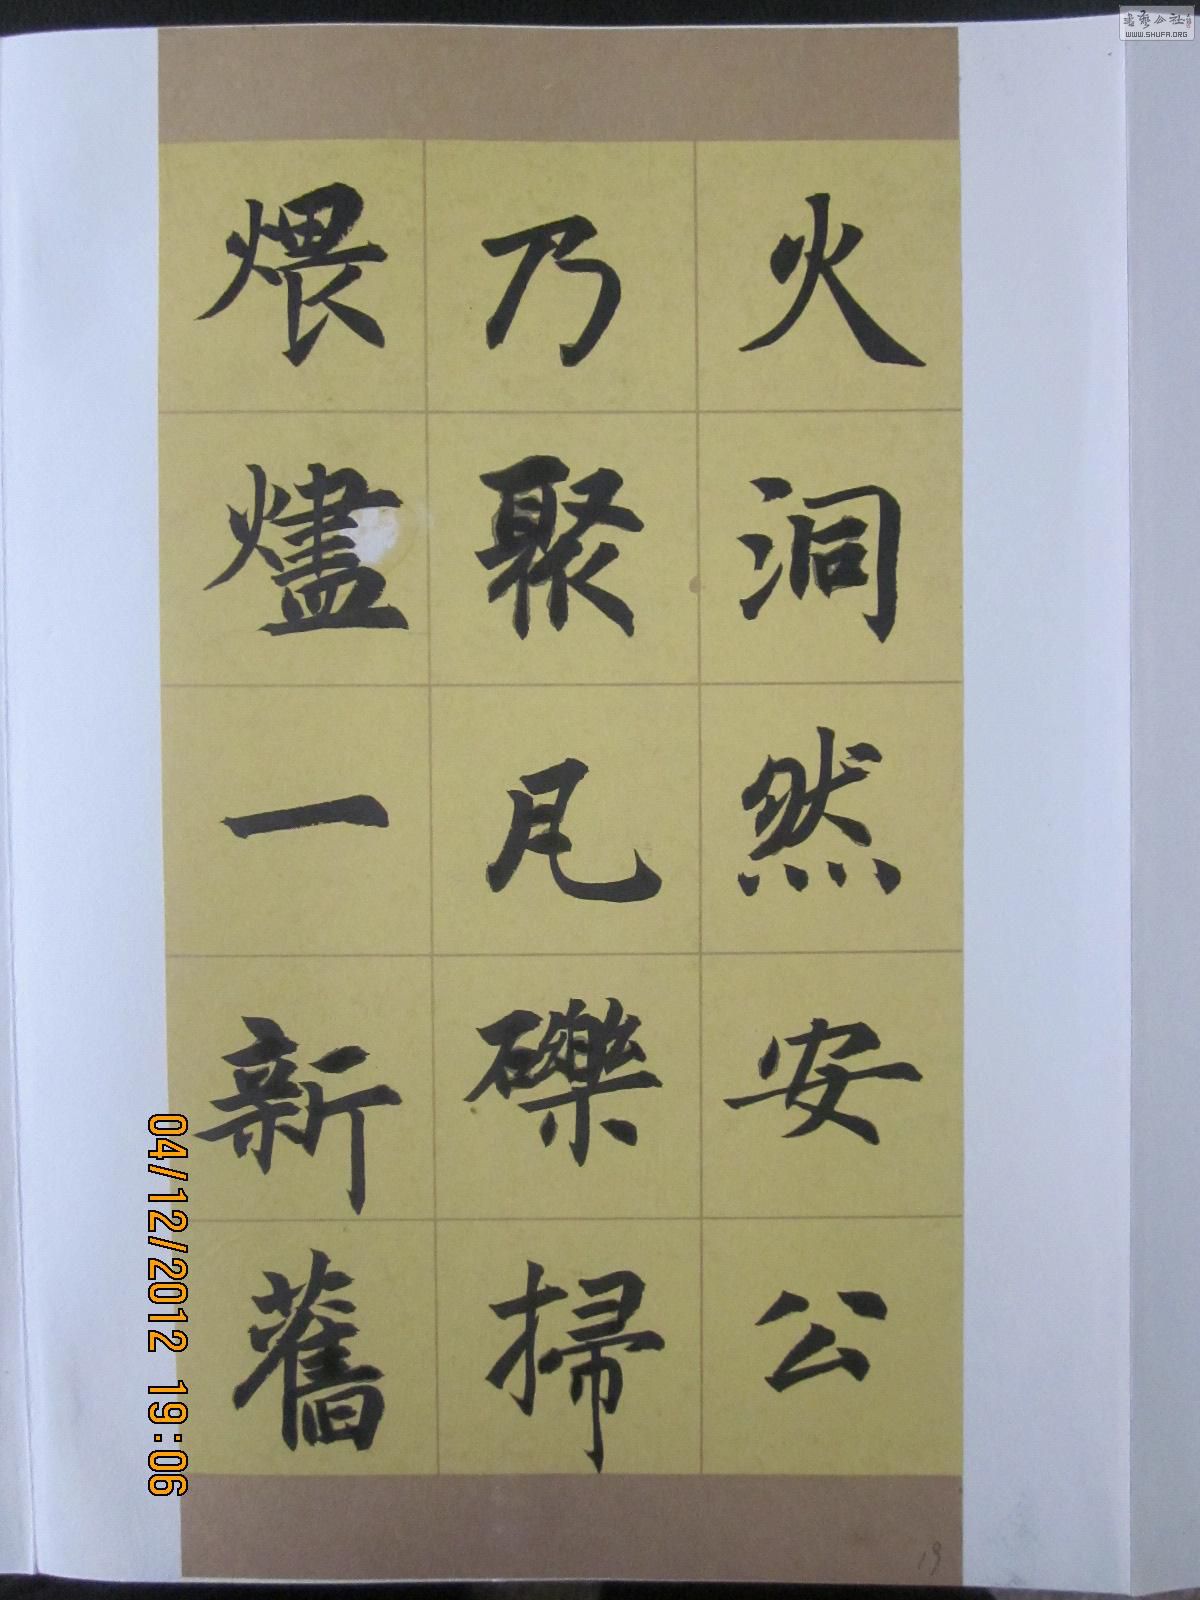 火洞然安公
乃聚瓦礫掃
煨燼一新舊
04/12/2012 19:06
19
书艺公社
WWW.SHUFA.ORG